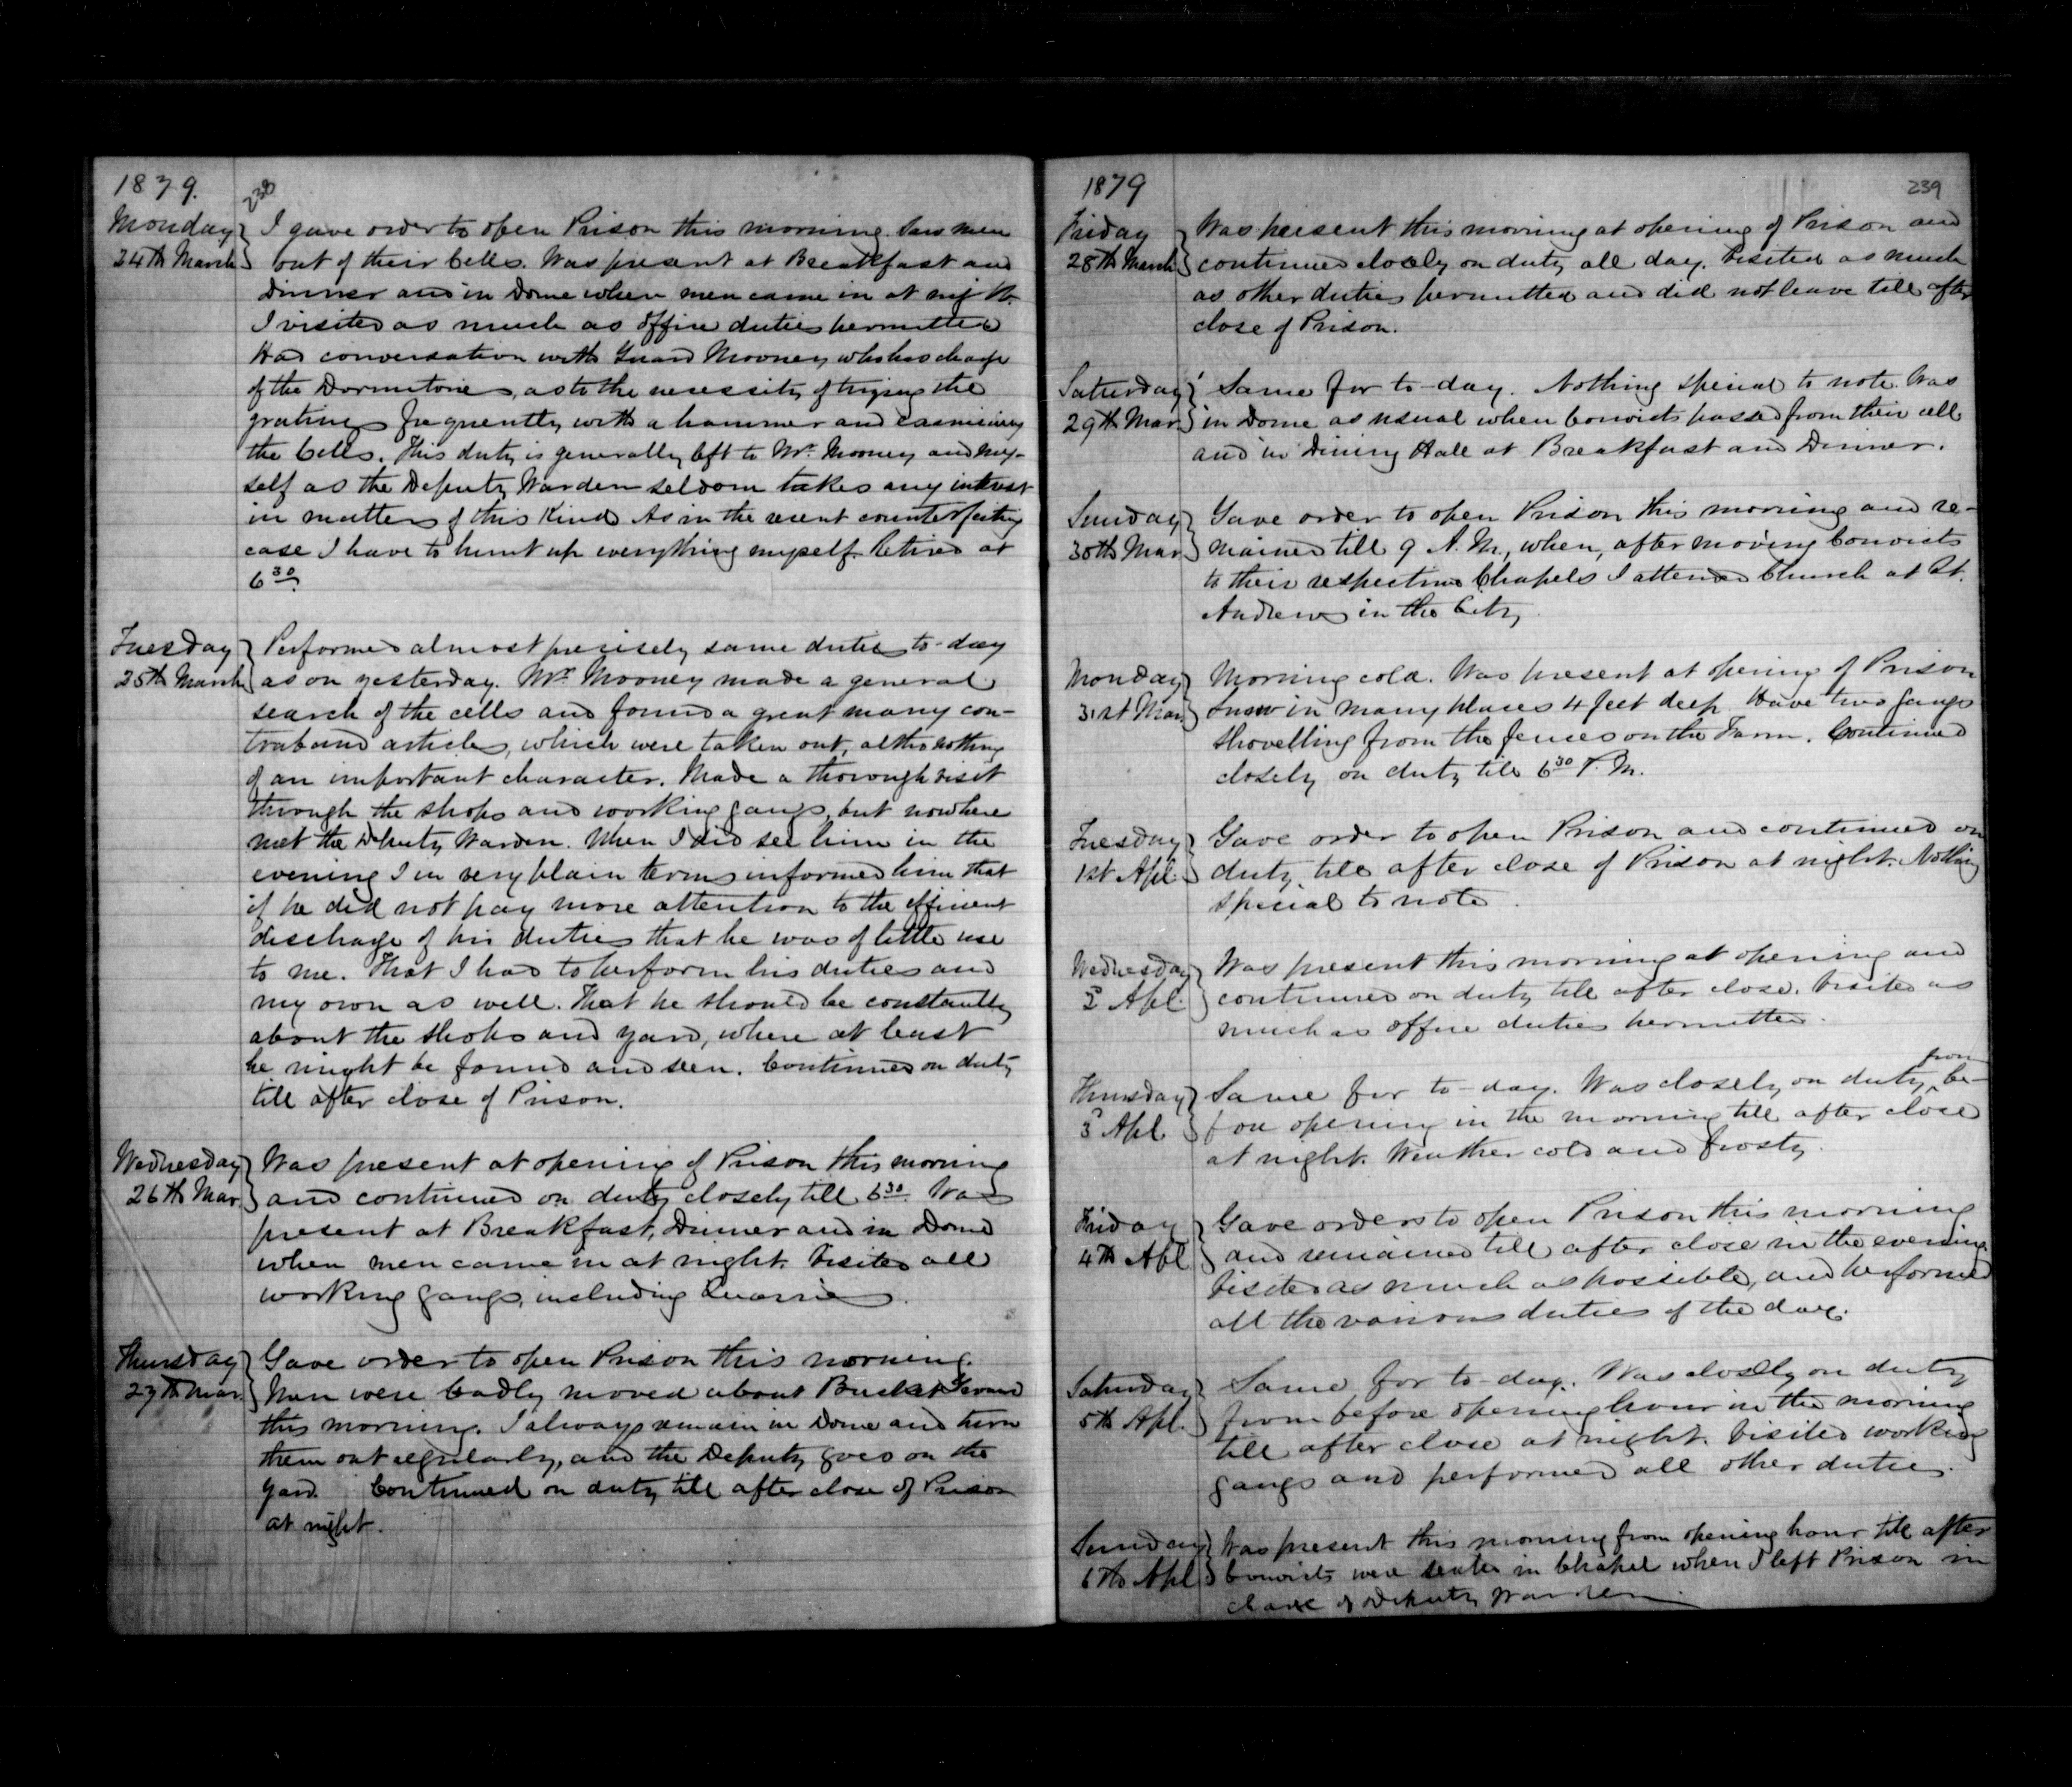 1879.
238
Monday 24th March } I gave order to open Prison this morning. Saw men
out of their Cells. Was present at Breakfast and
Dinner and in Dome when men came in at night.
I visited as much as office duties permitted
Had conversation with Guard Mooney who has charge
of the Dormitories, as to the necessity of trying the
gratings frequently with a hammer and examining
the Cells. This duty is generally left to Mr. Mooney and my-
self as the Deputy Warden seldom takes any interest
in matters of this kind. As in the recent counterfeiting
case I have to hunt up everything myself. Retired at
6 30
Tuesday 25th March } Performed almost precisely same duties to-day
as on yesterday. Mr. Mooney made a general
search of the cells and found a great many con-
traband articles, which were taken out, altho nothing
of an important character. Made a thorough visit
through the shops and working gangs, but nowhere
met the Deputy Warden. When I did see him in the
evening I in very plain terms informed him that
if he did not pay more attention to the efficient
discharge of his duties that he was of little use
to me. That I had to perform his duties and
my own as well. That he should be constantly
about the shops and yard, where at least
he might be found and seen. Continued on duty
till after close of Prison.
Wednesday 26th Mar. } Was present at opening of Prison this morning
and continued on duty closely till 6 30. Was
present at Breakfast, Dinner and in Dome
when men came in at night. Visited all
working gangs, including Quarries.
Thursday 27th Mar. } Gave order to open Prison this morning.
Men were badly moved about Bucket Ground
this morning. I always remain in Dome and turn
them out regularly, and the Deputy goes on the
yard. Continued on duty till after close of Prison
at night.
1879
239
Friday 28th March } Was present this morning at opening of Prison and
continued closely on duty all day. Visited as much
as other duties permitted and did not leave till after
close of Prison.
Saturday 29th Mar. } Same for to-day. Nothing special to note. Was
in Dome as usual when Convicts passed from their cells
and in Dining Hall at Breakfast and Dinner.
Sunday 30th Mar. } Gave order to open Prison this morning and re-
mained till 9 A.M., when, after moving Convicts
to their respective Chapels I attended Church at St.
Andrews in the City.
Monday 31st Mar. } Morning cold. Was present at opening of Prison
Snow in many places 4 feet deep. Have two gangs
shovelling from the fences on the Farm. Continued
closely on duty till 6 30 P.M.
Tuesday 1st Apl. } Gave order to open Prison and continued on
duty till after close of Prison at night. Nothing
special to note.
Wednesday 2 Apl. } Was present this morning at opening and
continued on duty till after close. Visited as
much as office duties permitted.
Thursday 3 Apl. } Same for to-day. Was closely on duty from be-
fore opening in the morning till after close
at night. Weather cold and frosty.
Friday 4th Apl } Gave orders to open Prison this morning
and remained till after close in the evening.
Visited as much as possible, and performed
all the various duties of the day.
Saturday 5th Apl. } Same for to-day. Was closely on duty
from before opening hour in the morning
till after close at night. Visited working
gangs and performed all other duties.
Sunday 6th Apl } Was present this morning from opening hour till after
Convicts were seated in Chapel when I left Prison in
charge of Deputy Warden